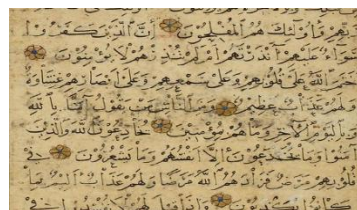 ربهم واولئك هم المفلحون ان الذين كفروا
سواء عليهم ءانذرتهم ام لم تنذرهم لا يؤمنون
ختم الله على قلوبهم وعلى سمعهم وعلى ابصارهم غشاوة
ولهم عذاب عظيم ومن الناس من يقول امنا بالله
وباليوم الاخر وما هم بمؤمنين يخادعون الله والذين
امنوا وما يخدعون الا انفسهم وما يشعرون في
قلوبهم مرض فزادهم الله مرضا ولهم عذاب اليم بما
كانوا يكذبون واذا قيل لهم لا تفسدوا في